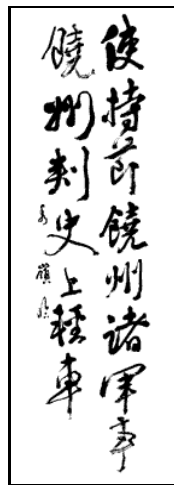 使持节饒州諸軍事
饒州刺史上輕車